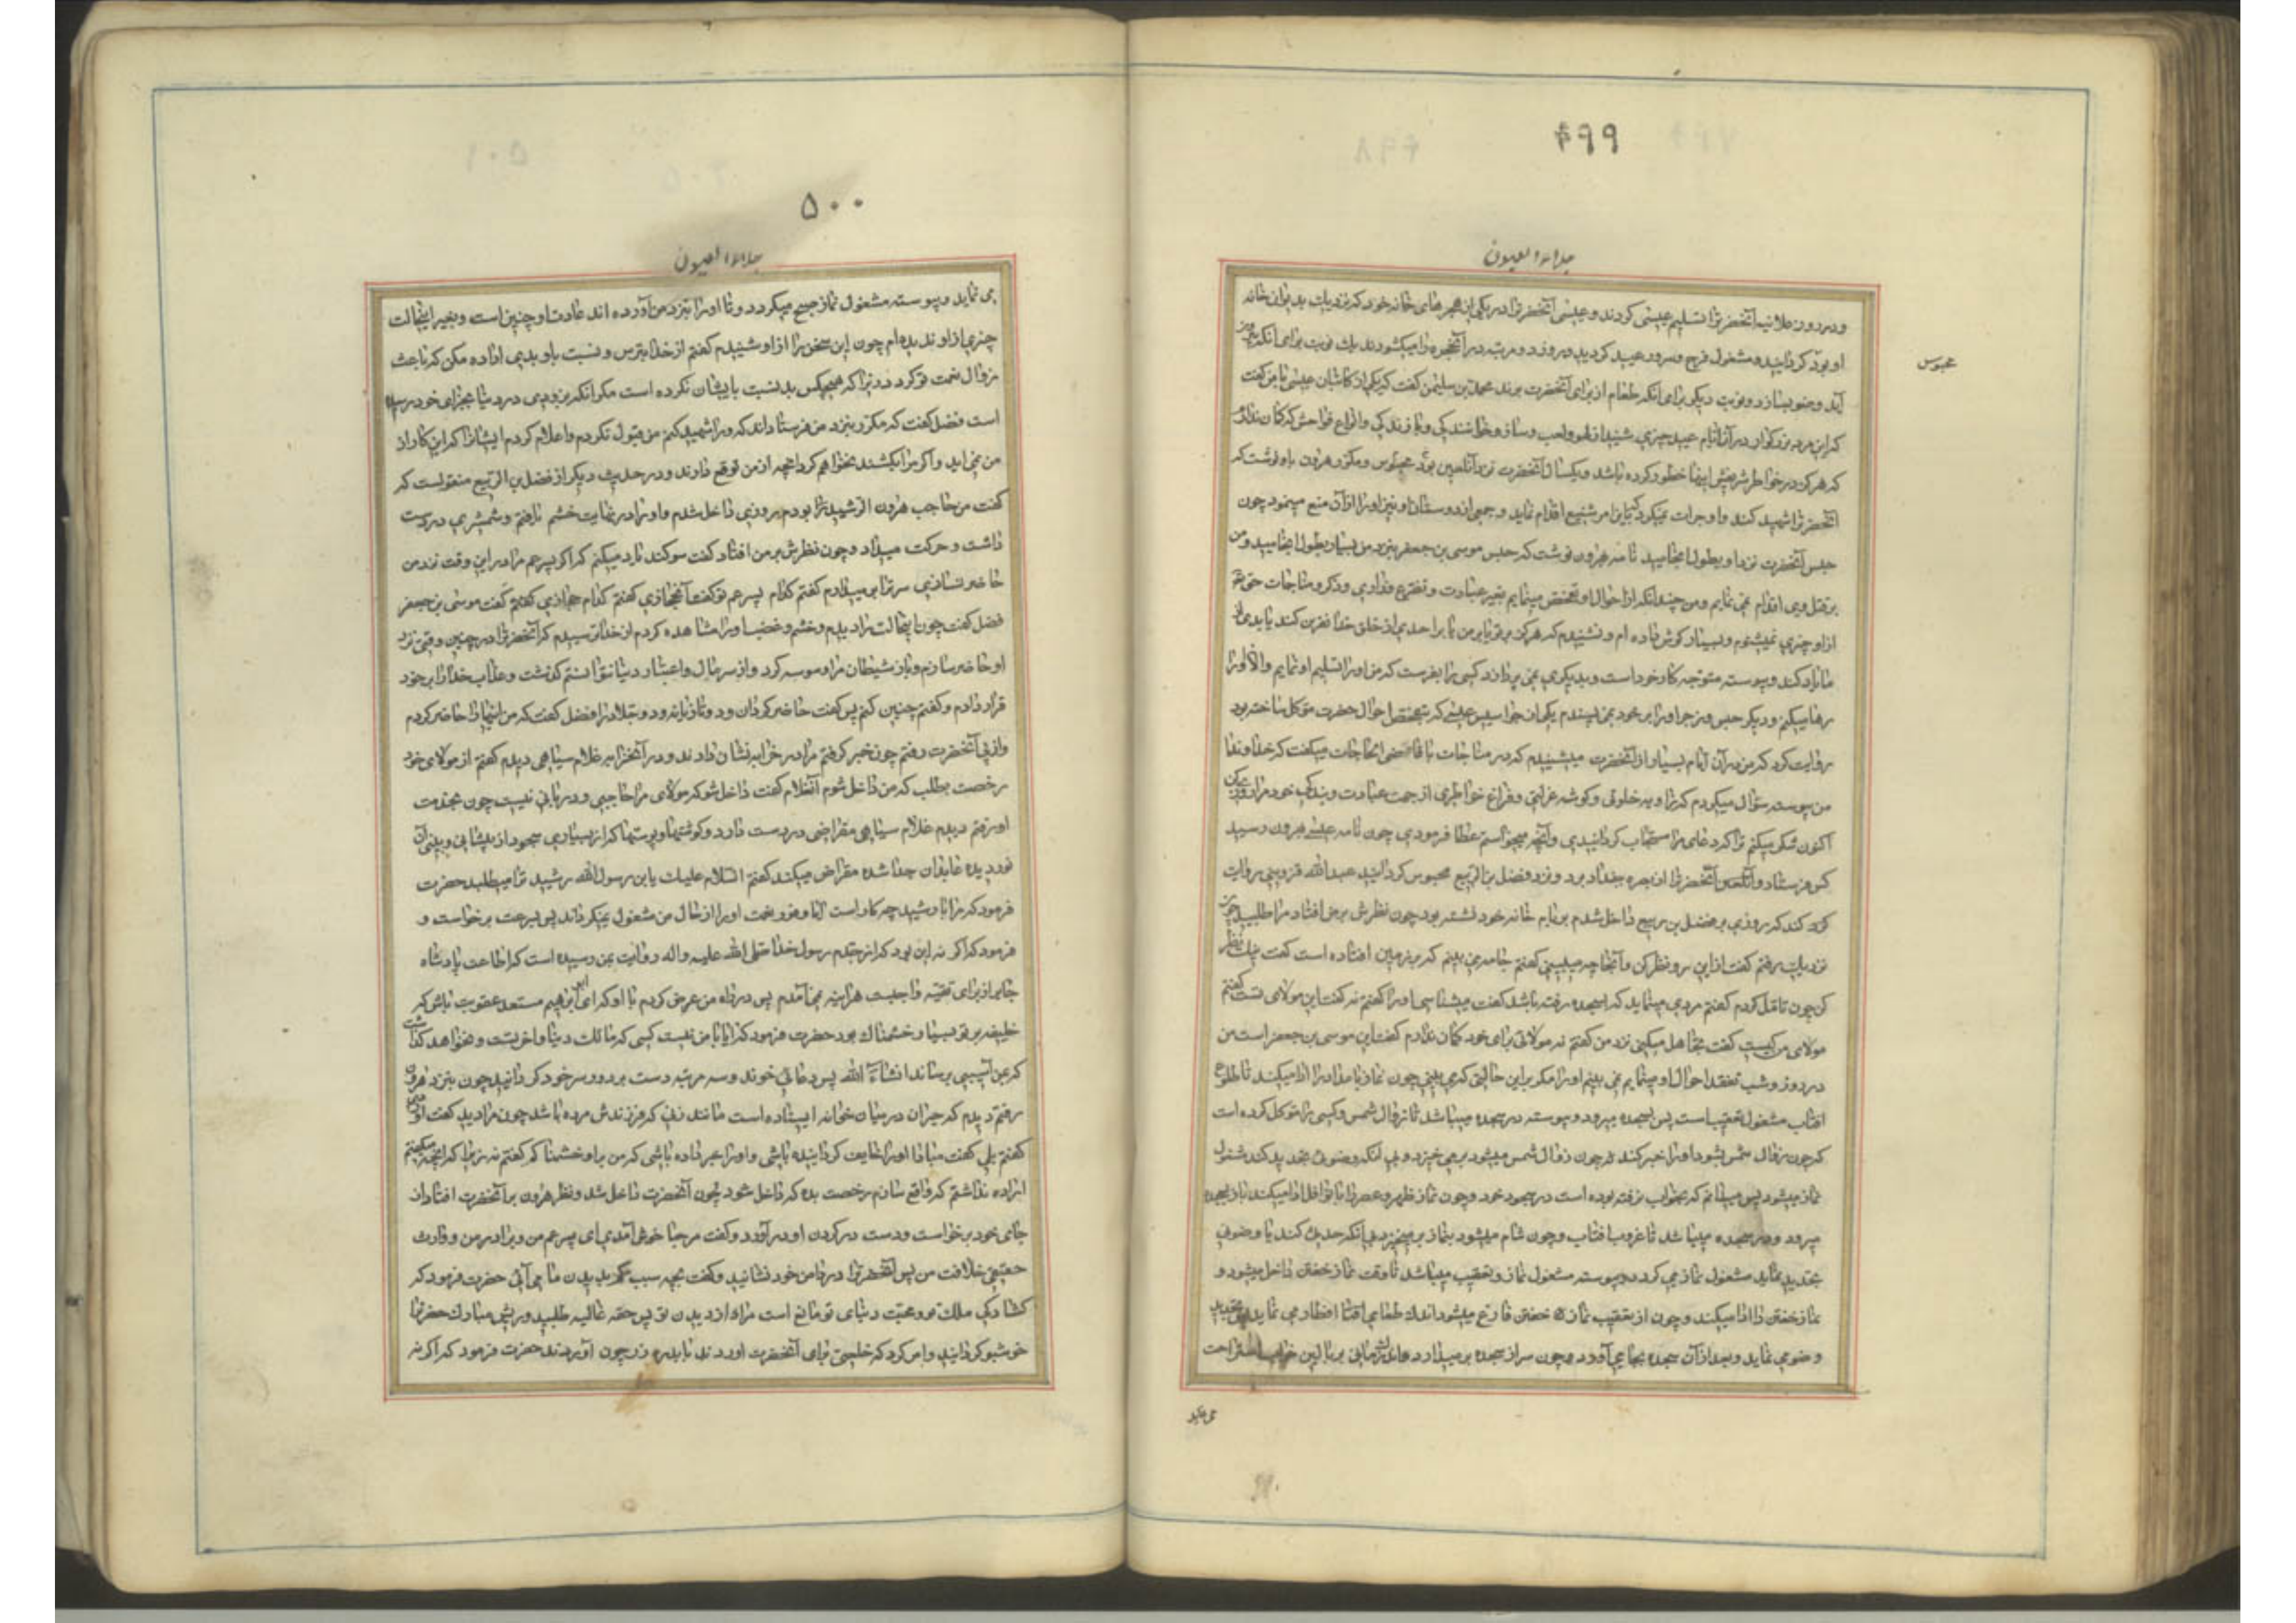 ۴۹۹
جلاء العیون
و در روز علانیه آنحضرت را تسلیم عیسی کردند و عیسی آنحضرت را در یکی از حجرهای خانه خود که نزدیک بدیوان خانه
او بود گردانید و مشغول فرح و سرور عید گردید و روزی دو مرتبه در آنحجره را میکشودند یک نوبت برای آنکه بیرون
آید و وضو بسازد و نوبت دیگر برای آنکه طعام از برای آنحضرت برند محمد بن سلیمن گفت که یکی از کاتبان عیسی با من گفت
که این مرد بزرگوار در آن ایام عید چیزی شنید از لهو و لعب و ساز و خوانندگی و بازندگی و انواع فواحش که گمان ندارم
که هرگز در خواطر شریفش اینها خطور کرده باشد و یکسال آنحضرت نزد آنلعین بود محبوس و مکرر هرون باو نوشت که
آنحضرت را شهید کند و او جرات نمیکرد که باین امر شنیع اقدام نماید و جمعی از دوستان او نیز او را از آن منع مینمود چون
حبس آنحضرت نزد او بطول انجامید نامه بهرون نوشت که حبس موسی بن جعفر بنزد من بسیار بطول انجامید و من
بر قتل وی اقدام نمی نمایم و من چندانکه از احوال او تفحص مینمایم بغیر عبادت و تضرع و زاری و ذکر و مناجات حق تعالی
از او چیزی نمیشنوم و بسیار گوش داده ام و نشنیدم که هرگز بر تو یا بر من یا بر احدی از خلق خدا نفرین کند یا بدی از
ما یاد کند و پیوسته متوجه کار خود است و بدیگری نمی پردازد کسی را بفرست که من او را تسلیم او نمایم و الا او را
رها میکنم و دیگر حبس و زجر او را بر خود نمی پسندم یکی از جواسیس عیسی که بتفحص احوال حضرت موکل ساخته بود
روایت کرد که من در آن ایام بسیار از آنحضرت میشنیدم که در مناجات با قاضی الحاجات میگفت که خداوندا
من پیوسته سؤال میکردم که زاویه خلوتی و گوشه عزلتی و فراغ خواطری از جهت عبادت و بندگی خود مرا روزی کن
اکنون شکر میکنم ترا که دعای مرا مستجاب گردانیدی و آنچه میخواستم عطا فرمودی چون نامه عیسی بهرون رسید
کس فرستاد و آنحضرت را از بصره ببغداد برد و نزد فضل بن الربیع محبوس گردانید عبدالله قزوینی روایت
کرد کند که روزی بر فضل بن ربیع داخل شدم بر بام خانه خود نشسته بود چون نظرش بر من افتاد مرا طلبید چون
نزدیک رفتم گفت از این روزنه نظر کن و آنجا چه میبینی گفتم جامه می بینم که بر زمین افتاده است گفت نیک نظر
کن چون تامل کردم گفتم مردی مینماید که بسجده رفته باشد گفت میشناسی او را گفتم نه گفت این مولای تست گفتم
مولای من کیست گفت تجاهل میکنی نزد من گفتم نه مولائی برای خود گمان ندارم گفت این موسی بن جعفر است من
در روز و شب تفقد احوال او مینمایم نمی بینم او را مگر بر این حالتی که می بینی چون نماز بامداد را ادا میکند تا طلوع
آفتاب مشغول تعقیب است پس بسجده میرود و پیوسته در سجده میباشد تا زوال شمس و کسی را موکل کرده است
که چون زوال شمس بشود او را خبر کند چون زوال شمس میشود بر می خیزد و بی آنکه وضوئی تجدید کند مشغول
نماز میشود پس میدانم که بخواب نرفته بوده است در سجود خود و چون نماز ظهر و عصر را با نوافل ادا میکند باز بسجده
میرود و در سجده میباشد تا غروب آفتاب و چون شام میشود بنماز بر میخیزد بی آنکه حدثی کند یا وضوئی
تجدید نماید مشغول نماز می گردد و پیوسته مشغول نماز و تعقیب میباشد تا وقت نماز خفتن داخل میشود و
نماز خفتن را ادا میکند و چون از تعقیب نماز خفتن فارغ میشود اندک طعامی افطار می نماید پس تجدید
وضو می نماید و بعد از آن سجده بجا می آورد و چون سر از سجده بر میدارد اندک زمانی بر بالین خواب استراحت
می نماید
محبوس
۵۰۰
جلاء العیون
می نماید و پیوسته مشغول نماز صبح میگردد و تا او را بنزد من آورده اند عادت او چنین است و بغیر اینحالت
چیزی از او ندیده ام چون این سخن را از او شنیدم گفتم از خدا بترس و نسبت باو بدیی اراده مکن که باعث
زوال نعمت تو گردد زیرا که هیچکس بد نسبت بایشان نکرده است مگر آنکه بزودی در دنیا بجزای خود رسیده
است فضل گفت که مکرر بنزد من فرستاده اند که او را شهید کنم من قبول نکردم و اعلام کردم ایشانرا که این کار از
من نمی آید و اگر مرا بکشند نخواهم کرد آنچه از من توقع دارند و در حدیث دیگر از فضل بن الربیع منقولست که
گفت من حاجب هرون الرشید بودم روزی داخل شدم و او را در نهایت خشم یافتم و شمشیری در دست
داشت و حرکت میداد و چون نظرش بر من افتاد گفت سوگند یاد میکنم که اگر پسر عم مرا در این وقت نزد من
حاضر نسازی سر ترا بر میدارم گفتم کدام پسر عم تو گفت آنحجازی گفتم کدام حجازی گفت موسی بن جعفر
فضل گفت چون اینحالت را دیدم و خشم و غضب او را مشاهده کردم از خدا ترسیدم که آنحضرت را در چنین وقتی نزد
او حاضر سازم و باز شیطان مرا وسوسه کرد و از سر مال و اعتبار دنیا نتوانستم گذشت و عذاب خدا را بر خود
قرار دادم و گفتم چنین کنم پس گفت حاضر گردان دو تازیانه و دو جلاد را فضل گفت که من اینها را حاضر کردم
و از پی آنحضرت رفتم چون خبر گرفتم مرا در خرابه نشان دادند و در آنخرابه غلام سیاهی دیدم گفتم از مولای خود
رخصت بطلب که من داخل شوم آنغلام گفت داخل شو که مولای مرا حاجبی و دربانی نیست چون بخدمت
او رفتم دیدم غلام سیاهی مقراضی در دست دارد و گوشتها و پوستها که از بسیاری سجود از پیشانی و بینی آن
نور دیده عابدان جدا شده مقراض میکند گفتم السلام علیک یا بن رسول الله رشید ترا میطلبد حضرت
فرمود که مرا با رشید چه کار است آیا وفور نعمت او را از حال من مشغول نمیگرداند پس بسرعت برخواست و
فرمود که اگر نه این بود که از جدم رسول خدا صلی الله علیه و اله روایت بمن رسیده است که اطاعت پادشاه
جابر از برای تقیه واجبست هراینه نمی آمدم پس در راه من عرض کردم با او که ای ابو ابرهیم مستعد عقوبت باش که
خلیفه بر تو بسیار خشمناک بود حضرت فرمود که آیا با من نیست کسی که مالک دنیا و اخرتست و نخواهد گذاشت
که بمن آسیبی برساند انشاء الله پس دعائی خوند و سه مرتبه دست بر دور سر خود گردانید چون بنزد هرون
رفتم دیدم که حیران در میان خوانه ایستاده است مانند زنی که فرزندش مرده باشد چون مرا دید گفت آوردی
گفتم بلی گفت مبادا او را خایف گردانیده باشی و او را خبر داده باشی که من بر او خشمناکم گفتم نه زیرا که آنچه میگفتم
اراده نداشتم که واقع سازم رخصت بده که داخل شود چون آنحضرت داخل شد و نظر هرون بر آنحضرت افتاد از
جای خود برخواست و دست در گردن او در آورد و گفت مرحبا خوش آمدی ای پسر عم من و برادر من و وارث
حقیقی خلافت من پس آنحضرت را در دامن خود نشانید و گفت بچه سبب بدیدن ما نمی آئی حضرت فرمود که
گشادگی ملک تو و محبت دنیای تو مانع است مرا از دیدن تو پس حقه غالیه طلبید و ریش مبارک حضرت را
خوشبو گردانید و امر کرد که خلعتی برای آنحضرت اوردند با بدره زر چون آوردند حضرت فرمود که اگر نه